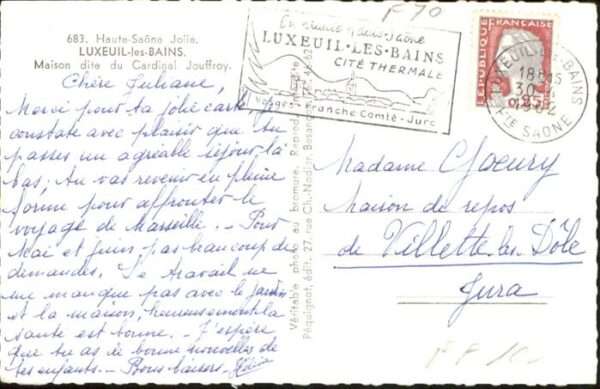 683. Haute-Saône Jolie.
LUXEUIL-les-BAINS.
Maison dite du Cardinal Jouffroy.
Chère Juliane,
Merci pour ta jolie carte
constate avec plaisir que tu
passes un agréable séjour là
bas; tu vas revenir en pleine
forme pour affronter le
voyage de Marseille. - Pour
Mai et Juin, pas beaucoup de
demandes. Le travail ne
me manque pas avec le jardin
et la maison, heureusement la
santé est bonne. - J'espère
que tu as de bonnes nouvelles de
tes enfants. - Bons baisers
F 70
LUXEUIL-LES-BAINS
CITÉ THERMALE
Vosges - Franche Comté - Jura
REPUBLIQUE FRANÇAISE
0,25
LUXEUIL-LES-BAINS
18H15
30
1962
HTE SAÔNE
Véritable photo au bromure. Reprod.
Péquignot, édit., 27 rue Ch.-Nodier, Besançon
Madame Goeury
Maison de repos
de Villette-les-Dôle
Jura